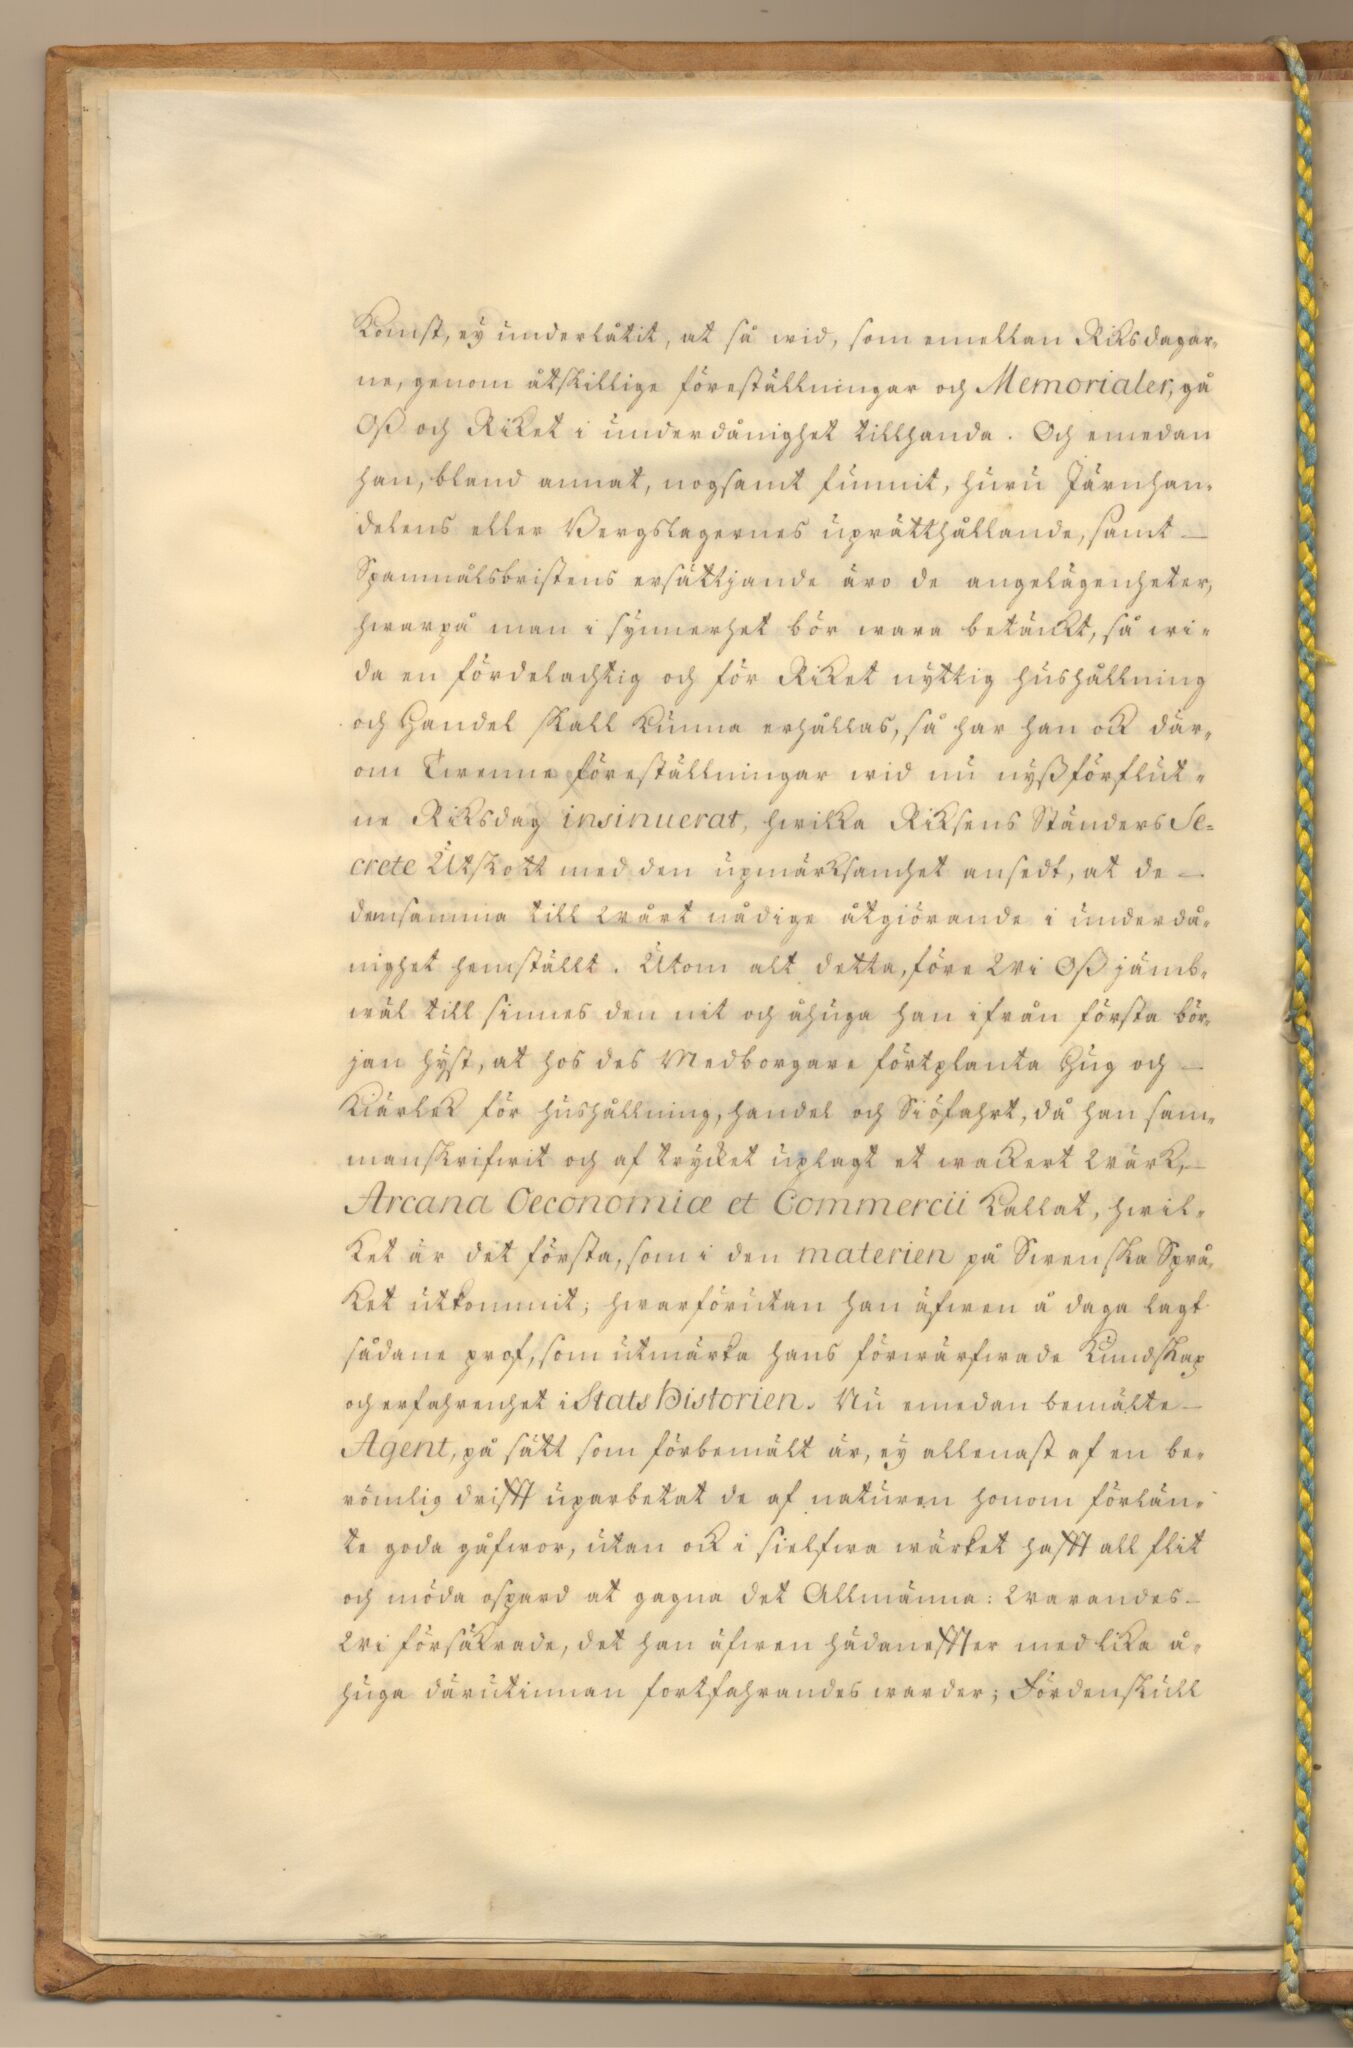 komst, ey underlåtit, at så wid, som emellan Riksdagar-
ne, genom åtskillige föreställningar och Memorialer, gå
Oß och Riket i underdånighet tillhanda. Och emedan
han, bland annat, nogsamt funnit, huru Järnhan-
delens eller Bergslagernes uprätthållande, samt
Spanmålsbristens ersättjande äro de angelägenheter,
hwarpå man i synnerhet bör wara betänckt, så wi-
da en fördelachtig och för Riket nyttig hushållning
och Handel skall kunna erhållas, så har han ock där-
om Twenne föreställningar wid nu nyßförflut-
ne Riksdag insinuerat, hwilka Riksens Ständers Se-
crete Utskott med den upmärksamhet ansedt, at de
densamma till Wårt nådige åtgiörande i underdå-
nighet hemställt. Utom alt detta, före Wi Oß jämb-
wäl till sinnes den nit och åhuga han ifrån första bör-
jan hyst, at hos des Medborgare förtplanta Hug och
Kiärlek för hushållning, handel och Siöfahrt, då han sam-
manskrifwit och af trycket uplagt et wackert Wärk,
Arcana Oeconomiæ et Commercii kallat, hwil-
ket är det första, som i den materien på Swenska Språ-
ket utkommit; hwarförutan han äfwen å daga lagt
sådane prof, som utmärka hans förwärfwade kundskap
och erfahrenhet i Stats Historien. Nu emedan bemälte
Agent, på sätt som förbemält är, ey allenast af en be-
römlig drifft uparbetat de af naturen honom förlän-
te goda gåfwor, utan ock i sielfwa wärket hafft all flit
och möda ospard at gagna det Allmänna: Warandes
Wi försäkrade, det han äfwen hädaneffter med lika å-
huga därutinnan fortfahrandes warder; Fördenskull